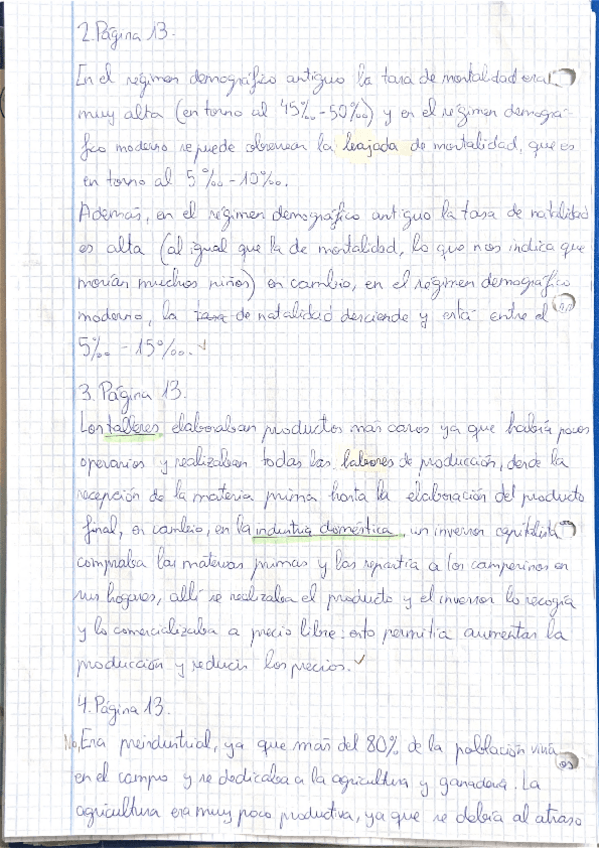 2. Página 13.
En el régimen demográfico antiguo la tasa de mortalidad era
muy alta (en torno al 45‰ - 50‰) y en el régimen demográ-
fico moderno se puede observar la bajada de mortalidad, que es
en torno al 5‰ - 10‰.
Además, en el régimen demográfico antiguo la tasa de natalidad
es alta (al igual que la de mortalidad, lo que nos indica que
morían muchos niños) en cambio, en el régimen demográfico
moderno, la tasa de natalidad desciende y está entre el
5‰ - 15‰. ✓
3. Página 13.
Los talleres elaboraban productos más caros ya que había pocos
operarios y realizaban todas las labores de producción, desde la
recepción de la materia prima hasta la elaboración del producto
final, en cambio, en la industria doméstica, un inversor capitalista
compraba las materias primas y las repartía a los campesinos en
sus hogares, allí se realizaba el producto y el inversor lo recogía
y lo comercializaba a precio libre: esto permitía aumentar la
producción y reducir los precios. ✓
4. Página 13.
No, Era preindustrial, ya que más del 80% de la población vivía
en el campo y se dedicaba a la agricultura y ganadería. La
agricultura era muy poco productiva, ya que se debía al atraso